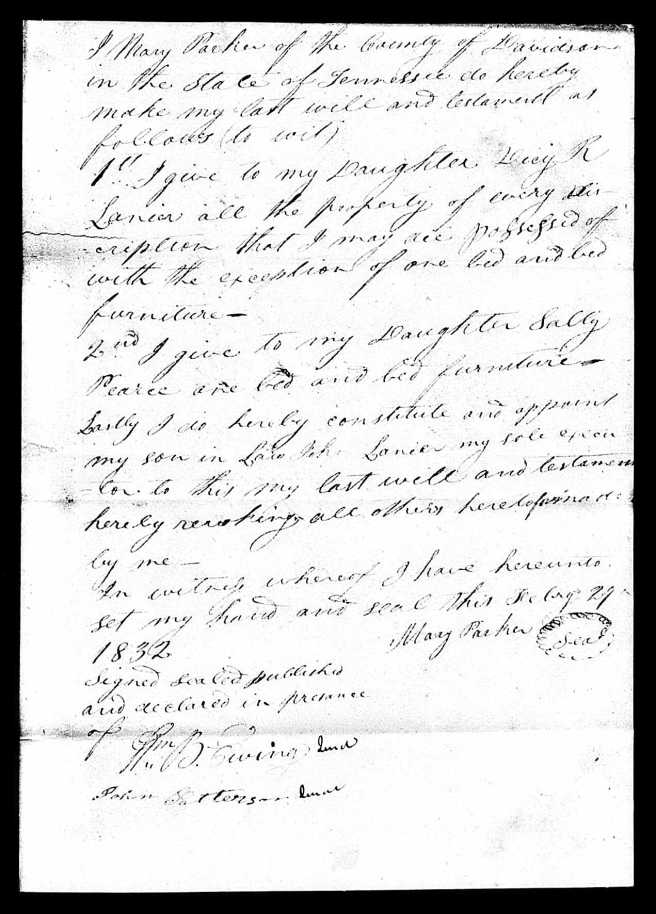 I Mary Parker of the County of Davidson
in the State of Tennessee do hereby
make my last will and testament as
follows (to wit)
1st I give to my Daughter Lucy R
Lanier all the property of every dis-
-cription that I may die possessed off
with the exception of one bed and bed
furniture—
2nd I give to my Daughter Sally
Pearce one bed and bed furniture—
Lastly I do hereby constitute and appoint
my son in Law Lanier my sole execu
-tor to this my last will and testament
hereby revoking all others heretofore made
by me—
In witness whereof I have hereunto
set my hand and seal this Febry 29
1832
Mary Parker Seal
Signed sealed published
and declared in presence
of
Ewing Jurat
John Jurat